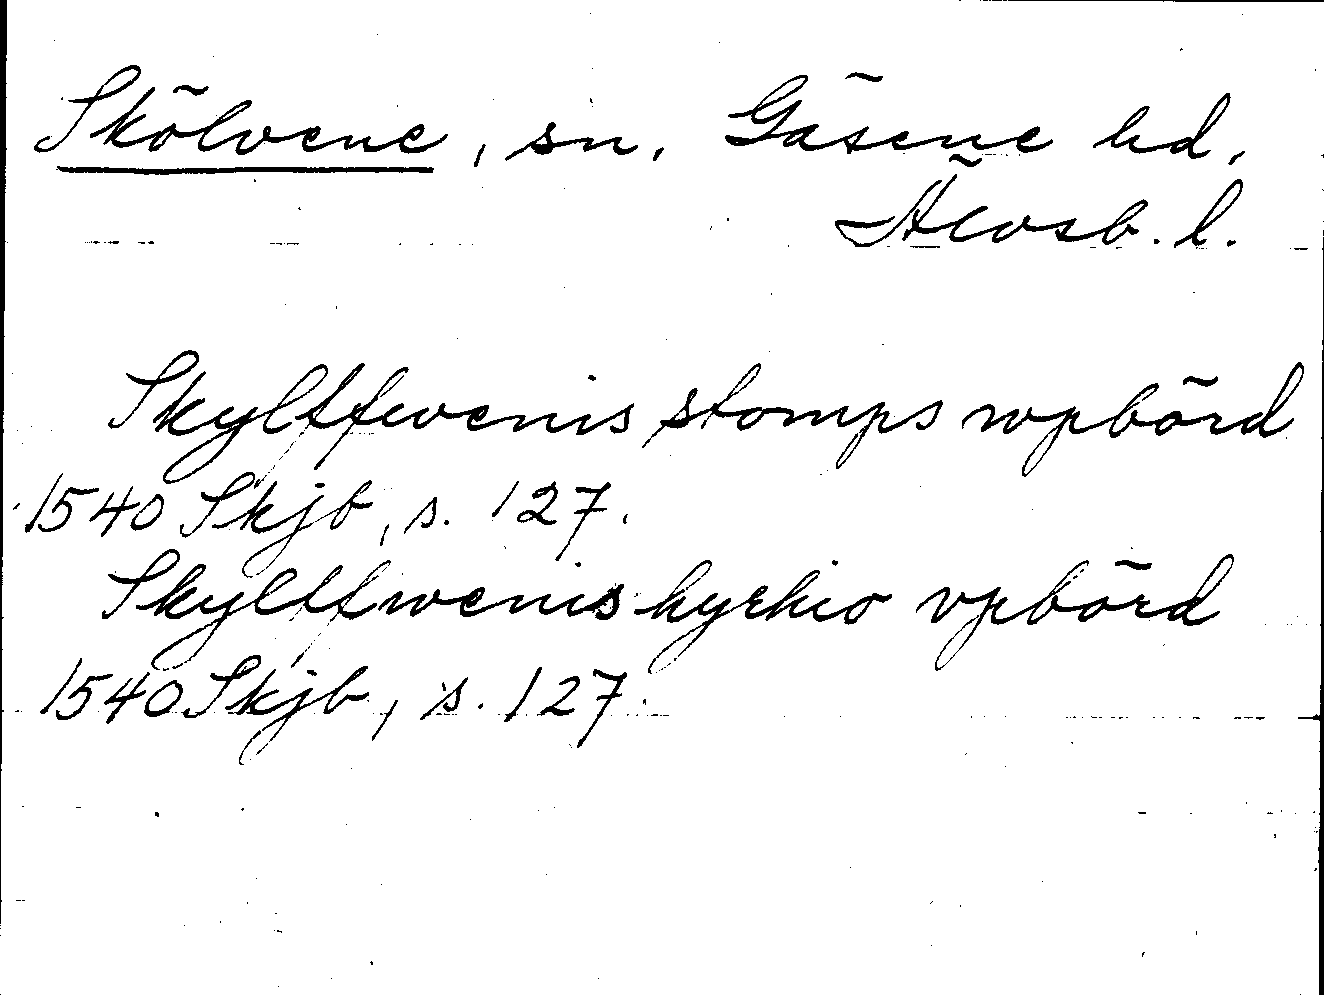 Skölvene, sn, Gäsene hd,
Älvsb. l.
Skylffwenis stomps wpbörd
1540 Skjb, s. 127.
Skylffwenis kyrkio vpbörd
1540 Skjb, s. 127.